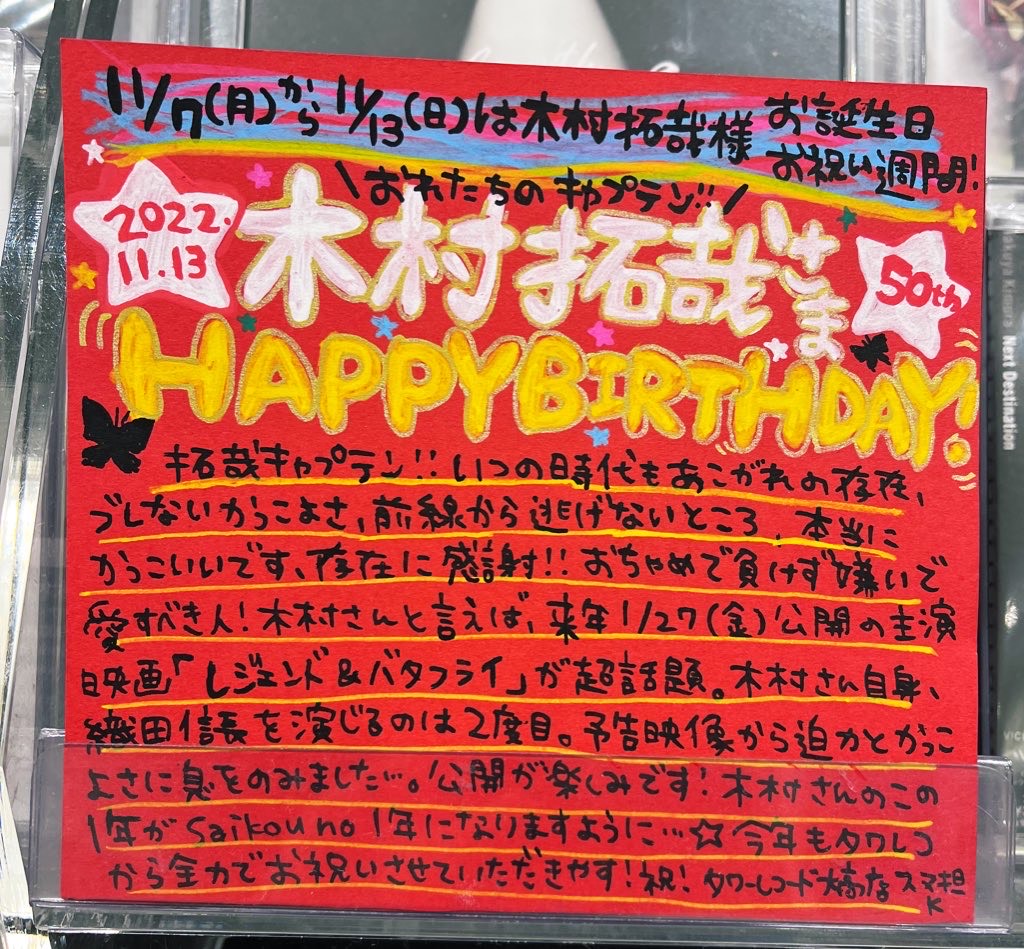 11/7(月)から11/13(日)は木村拓哉様お誕生日お祝い週間!
\おれたちのキャプテン!!/
2022.
11.13
木村拓哉さま
50th
HAPPY BIRTHDAY!
拓哉キャプテン!!いつの時代もあこがれの存在、
ブレないかっこよさ、前線から逃げないところ、本当に
かっこいいです、存在に感謝!!おちゃめで負けず嫌いで
愛すべき人!木村さんと言えば、来年1/27(金)公開の主演
映画「レジェンド&バタフライ」が超話題。木村さん自身、
織田信長を演じるのは2度目。予告映像から迫力とかっこ
よさに息をのみました…。公開が楽しみです!木村さんのこの
1年がSaikou no 1年になりますように…☆今年もタワレコ
から全力でお祝いさせていただきやす!祝!タワーレコード大高店スマ担
K
Next Destination